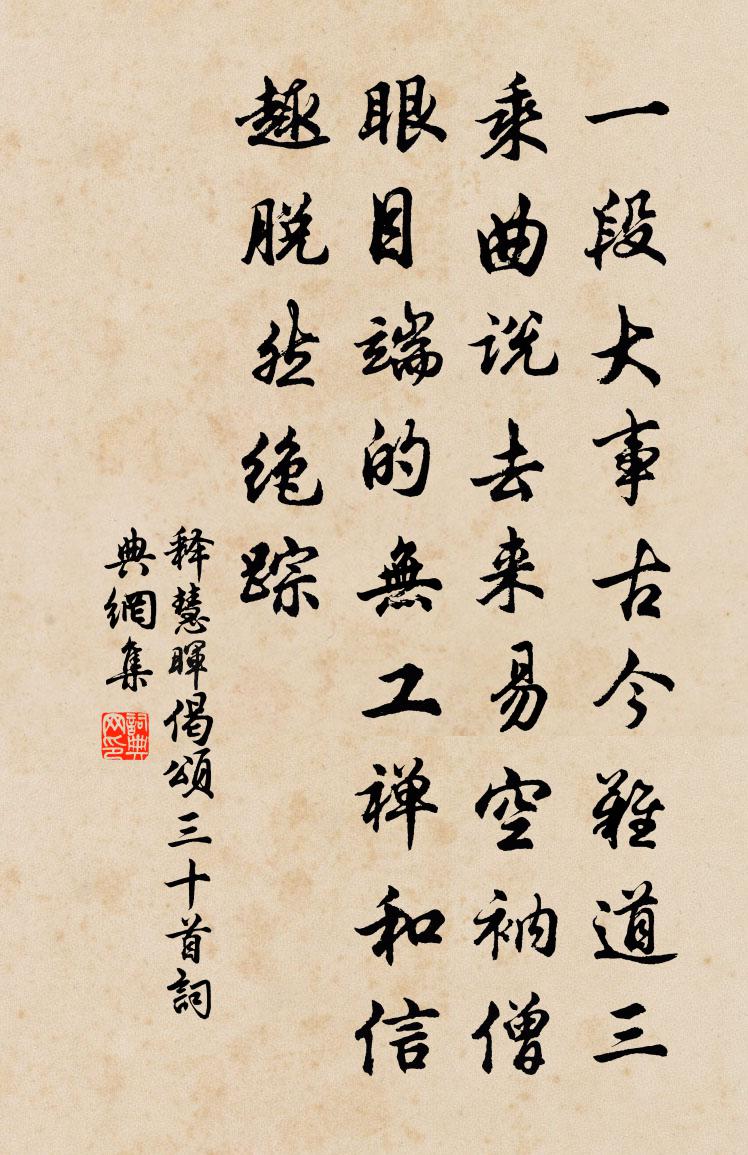 一段大事古今難道三
乘曲说去来易空衲僧
眼目端的無工禅和信
趣脱然绝踪
释慧暉偈頌三十首詞
典網集
詞典网印